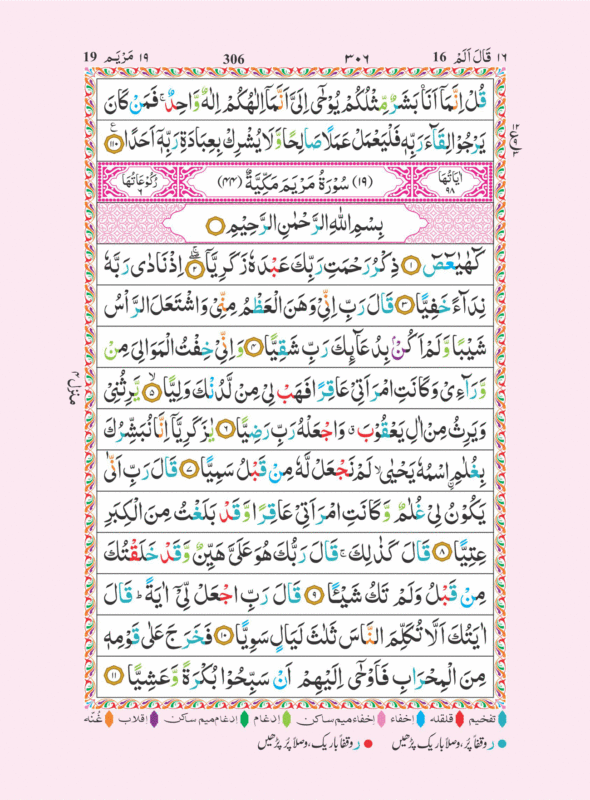 ١٦ قَالَ اَلَمْ 16 ٣٠٦ 306 ١٩ مَرْيَم 19
قُلْ اِنَّمَاۤ اَنَا۠ بَشَرٌ مِّثْلُكُمْ يُوْحٰۤى اِلَیَّ اَنَّمَاۤ اِلٰهُكُمْ اِلٰهٌ وَّاحِدٌ ۚ فَمَنْ كَانَ
يَرْجُوْا لِقَآءَ رَبِّهٖ فَلْيَعْمَلْ عَمَلًا صَالِحًا وَّلَا يُشْرِكْ بِعِبَادَةِ رَبِّهٖۤ اَحَدًا ١١٠
اٰيَاتُهَا ٩٨ (١٩) سُوْرَةُ مَرْيَمَ مَكِّيَّةٌ (٤٤) رُكُوْعَاتُهَا ٦
بِسْمِ اللّٰهِ الرَّحْمٰنِ الرَّحِيْمِ
كٓهٰيٰعٓصٓ ١ ذِكْرُ رَحْمَتِ رَبِّكَ عَبْدَهٗ زَكَرِيَّا ٢ اِذْ نَادٰى رَبَّهٗ
نِدَآءً خَفِيًّا ٣ قَالَ رَبِّ اِنِّیْ وَهَنَ الْعَظْمُ مِنِّیْ وَاشْتَعَلَ الرَّاْسُ
شَيْبًا وَّلَمْ اَكُنْۢ بِدُعَآئِكَ رَبِّ شَقِيًّا ٤ وَاِنِّیْ خِفْتُ الْمَوَالِیَ مِنْ
وَّرَآءِیْ وَكَانَتِ امْرَاَتِیْ عَاقِرًا فَهَبْ لِیْ مِنْ لَّدُنْكَ وَلِيًّا ٥ يَّرِثُنِیْ
وَيَرِثُ مِنْ اٰلِ يَعْقُوْبَ ۖ وَاجْعَلْهُ رَبِّ رَضِيًّا ٦ يٰزَكَرِيَّاۤ اِنَّا نُبَشِّرُكَ
بِغُلٰمِ ِۨاسْمُهٗ يَحْيٰى ۙ لَمْ نَجْعَلْ لَّهٗ مِنْ قَبْلُ سَمِيًّا ٧ قَالَ رَبِّ اَنّٰى
يَكُوْنُ لِیْ غُلٰمٌ وَّكَانَتِ امْرَاَتِیْ عَاقِرًا وَّقَدْ بَلَغْتُ مِنَ الْكِبَرِ
عِتِيًّا ٨ قَالَ كَذٰلِكَ ۚ قَالَ رَبُّكَ هُوَ عَلَیَّ هَيِّنٌ وَّقَدْ خَلَقْتُكَ
مِنْ قَبْلُ وَلَمْ تَكُ شَيْـًٔا ٩ قَالَ رَبِّ اجْعَلْ لِّیْۤ اٰيَةً ؕ قَالَ
اٰيَتُكَ اَلَّا تُكَلِّمَ النَّاسَ ثَلٰثَ لَيَالٍ سَوِيًّا ١٠ فَخَرَجَ عَلٰى قَوْمِهٖ
مِنَ الْمِحْرَابِ فَاَوْحٰۤى اِلَيْهِمْ اَنْ سَبِّحُوْا بُكْرَةً وَّعَشِيًّا ١١
منزل ٤
تفخیم قلقله إخفاء إخفاء میم ساکن إدغام إدغام میم ساکن إقلاب غُنّه
ر وقفاً پُر، وصلاً باریک پڑھیں ر وقفاً باریک، وصلاً پُر پڑھیں